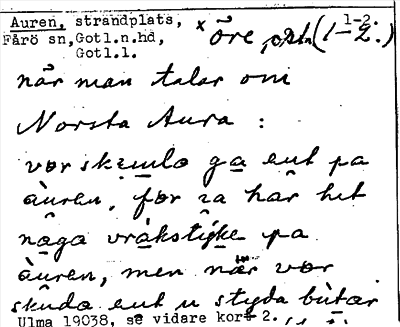 Auren, strandplats, × öre, pstn (1-2.)
Fårö sn, Gotl.n.hd, 1-2.
Gotl.l.
när man talar om
Norsta Aura :
vor skemlo ga eut pa
àuren, for za har het
naga vrakstyke pa
àuren, men nær vor
skuda eut n styda bùtar
Ulma 19038, se vidare kort 2.